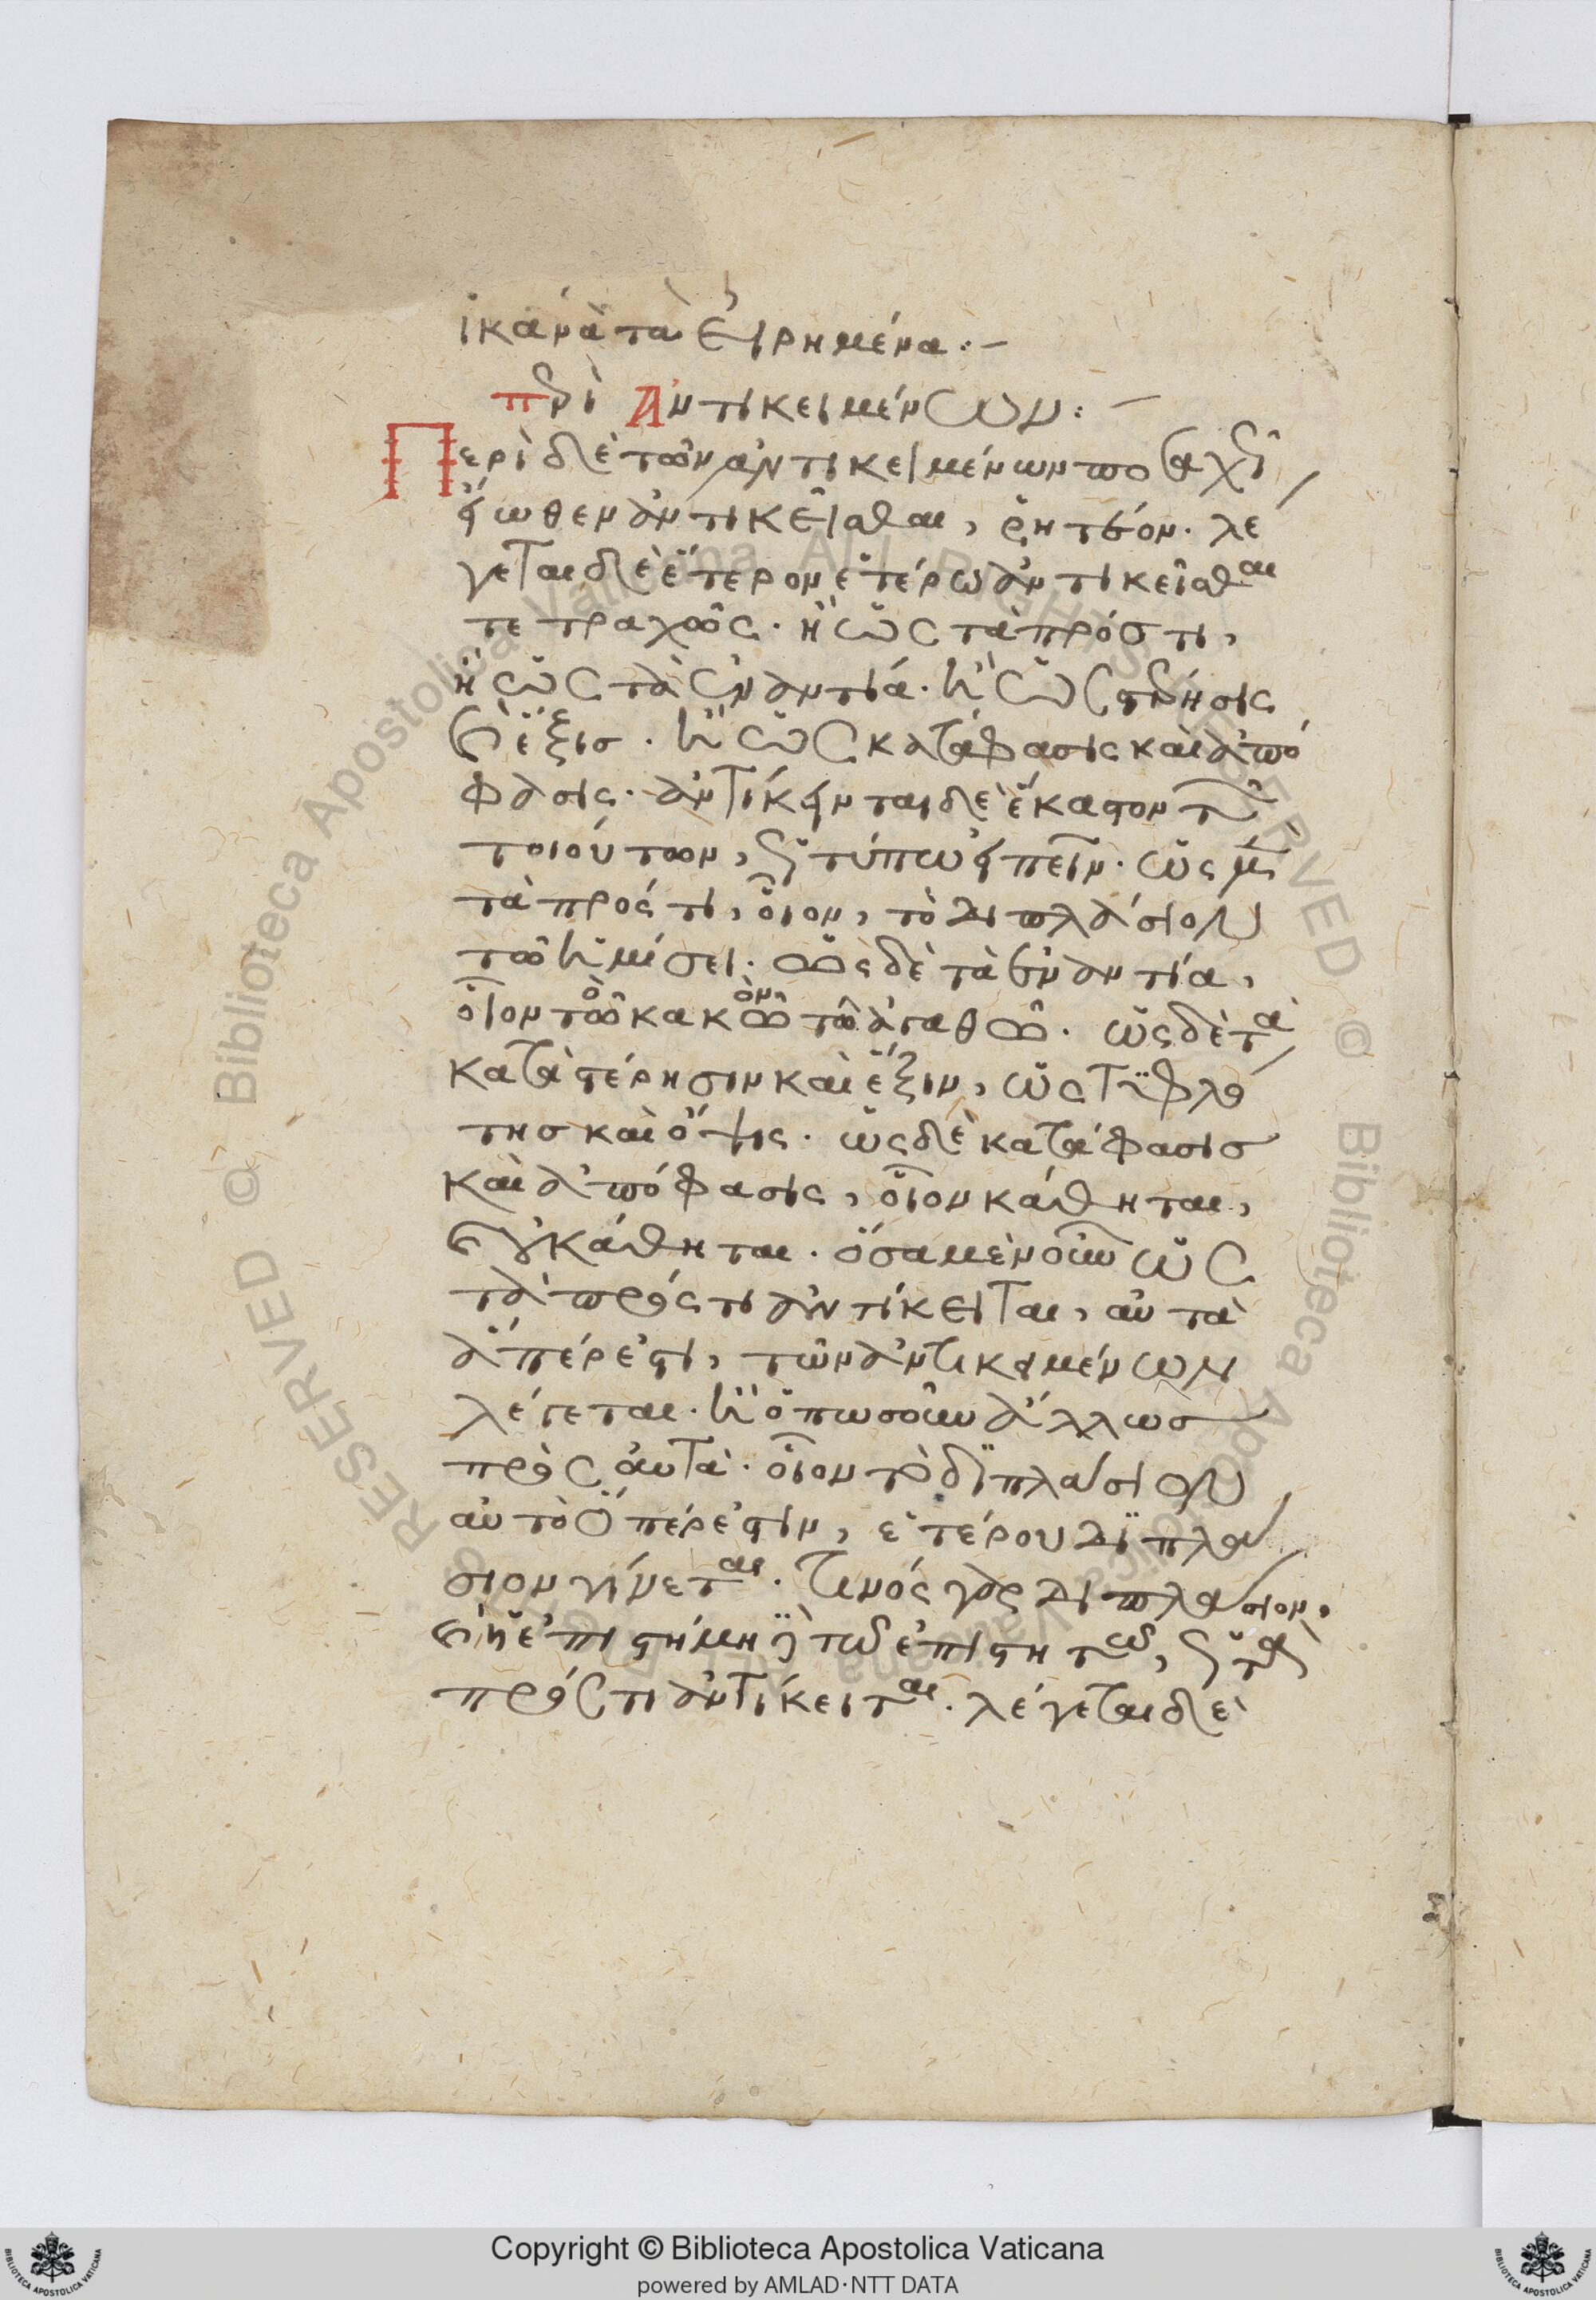 ἱκανὰ τὰ εἰρημένα:–
περὶ Ἀντικειμένων:–
Περὶ δὲ τῶν ἀντικειμένων ποσαχῶς
εἴωθεν ἀντικεῖσθαι, ῥητέον. λέ
γεται δὲ ἕτερον ἑτέρω ἀντικεῖσθαι
τετραχῶς. ἢ ὡς τὰ πρός τι,
ἢ ὡς τὰ ἐναντία. ἢ ὡς στέρησις
καὶ ἕξις. ἢ ὡς κατάφασις καὶ ἀπό
φασις. ἀντίκειται δὲ ἕκαστον τῶν
τοιούτων, ὡς τύπω εἰπεῖν. ὡς μὲν
τὰ πρός τι, οἷον, τὸ διπλάσιον
τῶ ἡμίσει. ὡς δὲ τὰ ἐναντία,
οἷον τὸ κακὸν τῶ ἀγαθῶ. ὡς δὲ τὰ
κατὰ στέρησιν καὶ ἕξιν, ὡς τυφλό
της καὶ ὄψις. ὡς δὲ κατάφασις
καὶ ἀπόφασις, οἷον κάθηται,
οὐ κάθηται. ὅσα μὲν οὖν ὡς
τὰ πρός τι ἀντίκειται, αὐτὰ
ἅπερ ἐστι, τῶν ἀντικειμένων
λέγεται. ἢ ὁπωσοῦν ἄλλως
πρὸς αὐτά. οἷον τὸ διπλάσιον
αὐτὸ ὅπερ ἐστιν, ἑτέρου διπλά
σιον γίνεται. τινός γὰρ διπλάσιον,
καὶ ἡ ἐπιστήμη δὲ τῶ ἐπιστητῶ, ὡς τὰ
πρός τι ἀντίκειται. λέγεται δὲ
Copyright © Biblioteca Apostolica Vaticana
powered by AMLAD·NTT DATA